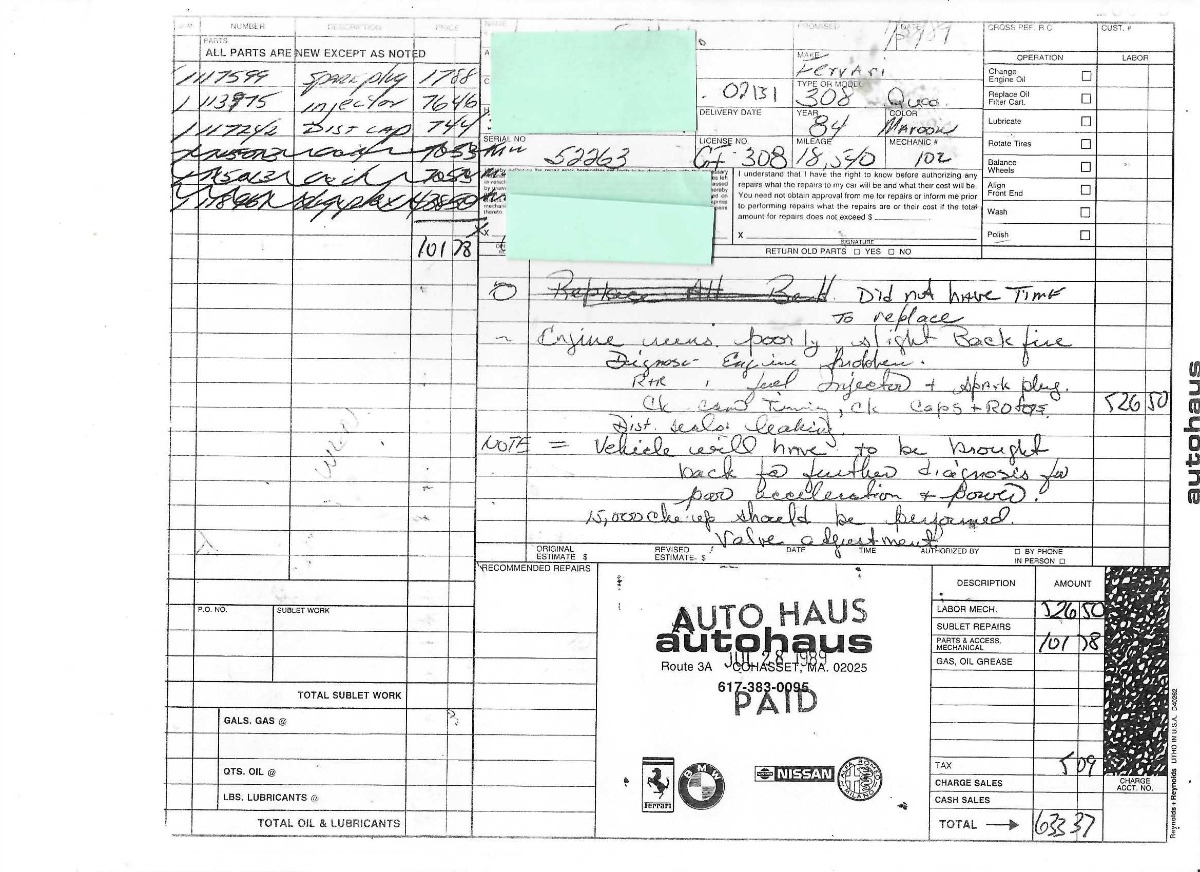 NUMBER DESCRIPTION PRICE
PARTS
ALL PARTS ARE NEW EXCEPT AS NOTED
1 117599 Spark plug 17 88
1 113975 injector 76 46
1 117242 Dist cap 7 44
101 78
NAME PROMISED DATE
MAKE
Ferrari
02131
TYPE OR MODEL
308 Quad
DELIVERY DATE YEAR COLOR
84 Maroon
SERIAL NO LICENSE NO. MILEAGE MECHANIC #
52263 GT 308 18,540 102
I understand that I have the right to know before authorizing any
repairs what the repairs to my car will be and what their cost will be.
You need not obtain approval from me for repairs or inform me prior
to performing repairs what the repairs are or their cost if the total
amount for repairs does not exceed $
X
SIGNATURE
RETURN OLD PARTS □ YES □ NO
CROSS REF. R.C. CUST. #
OPERATION LABOR
Change
Engine Oil
Replace Oil
Filter Cart.
Lubricate
Rotate Tires
Balance
Wheels
Align
Front End
Wash
Polish
Replace Alt Did not have Time
To replace
Engine runs poorly, slight Back fire
Diagnose Engine
R+R, fuel Injector + spark plug.
Ck cam Timing, ck Caps + Rotors 526 50
Dist. seals leaking
NOTE = Vehicle will have to be brought
back for further diagnosis for
poor acceleration + power.
15,000 should be performed.
Valve adjustment
ORIGINAL
ESTIMATE $
REVISED
ESTIMATE $
DATE TIME AUTHORIZED BY □ BY PHONE
IN PERSON □
RECOMMENDED REPAIRS
P.O. NO. SUBLET WORK
TOTAL SUBLET WORK
GALS. GAS @
QTS. OIL @
LBS. LUBRICANTS @
TOTAL OIL & LUBRICANTS
AUTO HAUS
autohaus
JUL 28 1989
Route 3A COHASSET, MA. 02025
617-383-0095
PAID
Ferrari
BMW
NISSAN
ALFA ROMEO
MILANO
DESCRIPTION AMOUNT
LABOR MECH. 526 50
SUBLET REPAIRS
PARTS & ACCESS.
MECHANICAL 101 78
GAS, OIL GREASE
TAX 5 09
CHARGE SALES
CASH SALES
TOTAL 633 37
CHARGE
ACCT. NO.
autohaus
Reynolds + Reynolds LITHO IN U.S.A.